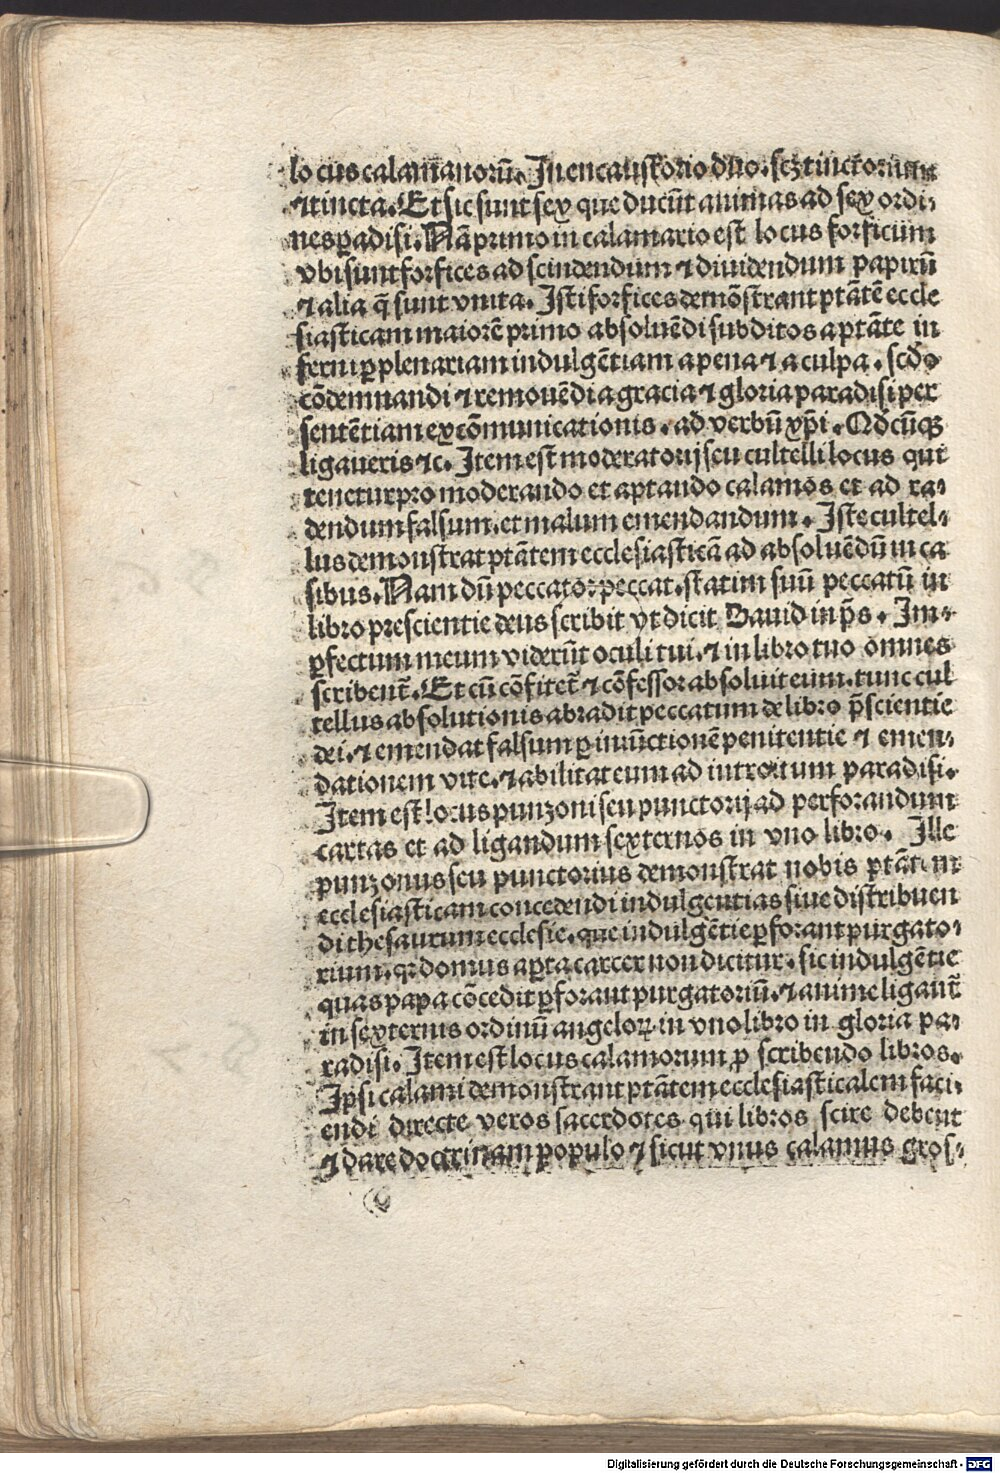 lo cus calamariorū. In encaustorio duo. scz tinctorium
⁊ tincta. Et sic sunt sex que ducūt animas ad sex ordi-
nes ꝑadisi. Nā primo in calamario est locus forficum
vbi sunt forfices ad scindendum ⁊ diuidendum papirū
⁊ alia q̄ sunt vnita. Isti forfices demōstrant ptātē eccle
siasticam maiorē primo absoluēdi subditos a ptāte in
ferni ꝑ plenariam indulgētiam a pena ⁊ a culpa. scd̄o
cōdemnandi ⁊ remouēdi a gracia ⁊ gloria paradisi per
sentētiam excōmunicationis. ad verbū xp̄i. Qd̄cūqꝫ
ligaueris ⁊c. Item est moderatorij seu cultelli locus qui
tenetur pro moderando et aptando calamos et ad ra-
dendum falsum. et malum emendandum. Iste cultel-
lus demonstrat ptātem ecclesiasticā ad absoluēdū in ca
sibus. Nam dū peccator peccat. statim suū peccatū in
libro prescientie deus scribit vt dicit Dauid in p̄s. Im-
ꝑfectum meum viderūt oculi tui. ⁊ in libro tuo omnes
scribent̄. Et cū cōfitet̄ ⁊ cōfessor absoluit eum. tunc cul
tellus absolutionis abradit peccatum de libro p̄scientie
dei. ⁊ emendat falsum ꝑ iniūctionē penitentie ⁊ emen-
dationem vite. ⁊ abilitat eum ad introitum paradisi.
Item est locus punzoni seu punctorij ad perforandum
cartas et ad ligandum sexternos in vno libro. Ille
punzonus seu punctorius demonstrat nobis ptātem
ecclesiasticam concedendi indulgentias siue distribuen
di thesaurum ecclesie. que indulgētie ꝑforant purgato-
rium. qꝛ domus aꝑta carcer non dicitur. sic indulgētie
quas papa cōcedit ꝑforant purgatoriū. ⁊ anime ligant̄
in sexternis ordinū angeloꝝ in vno libro in gloria pa-
radisi. Item est locus calamorum ꝓ scribendo libros.
Ipsi calami demonstrant ptātem ecclesiasticalem faci-
endi directe veros sacerdotes qui libros scire debent
⁊ dare doctrinam populo ⁊ sicut vnus calamus gros-
Digitalisierung gefördert durch die Deutsche Forschungsgemeinschaft - DFG